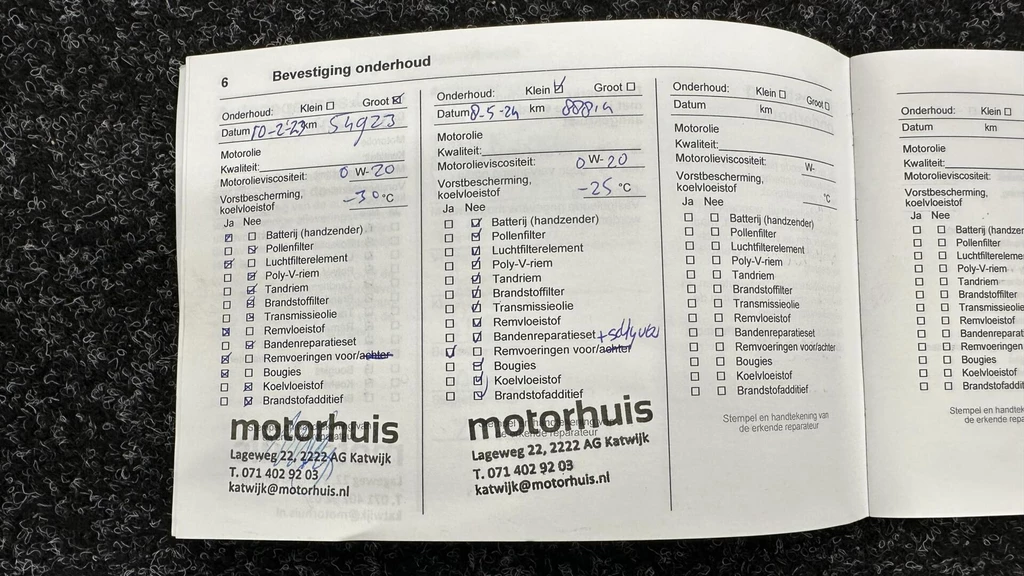 6 Bevestiging onderhoud
Onderhoud: Klein Groot
Datum 10-2-23 km 54923
Motorolie
Kwaliteit:
Motorolieviscositeit: 0 W-20
Vorstbescherming,
koelvloeistof -30 °C
Ja Nee
Batterij (handzender)
Pollenfilter
Luchtfilterelement
Poly-V-riem
Tandriem
Brandstoffilter
Transmissieolie
Remvloeistof
Bandenreparatieset
Remvoeringen voor/achter
Bougies
Koelvloeistof
Brandstofadditief
motorhuis
Lageweg 22, 2222 AG Katwijk
T. 071 402 92 03
katwijk@motorhuis.nl
Onderhoud: Klein Groot
Datum 8-5-24 km
Motorolie
Kwaliteit:
Motorolieviscositeit: 0 W-20
Vorstbescherming,
koelvloeistof -25 °C
Ja Nee
Batterij (handzender)
Pollenfilter
Luchtfilterelement
Poly-V-riem
Tandriem
Brandstoffilter
Transmissieolie
Remvloeistof
Bandenreparatieset
Remvoeringen voor/achter
+schijven
Bougies
Koelvloeistof
Brandstofadditief
motorhuis
de erkende reparateur
Lageweg 22, 2222 AG Katwijk
T. 071 402 92 03
katwijk@motorhuis.nl
Onderhoud: Klein Groot
Datum km
Motorolie
Kwaliteit:
Motorolieviscositeit: W-
Vorstbescherming,
koelvloeistof °C
Ja Nee
Batterij (handzender)
Pollenfilter
Luchtfilterelement
Poly-V-riem
Tandriem
Brandstoffilter
Transmissieolie
Remvloeistof
Bandenreparatieset
Remvoeringen voor/achter
Bougies
Koelvloeistof
Brandstofadditief
Stempel en handtekening van
de erkende reparateur
Onderhoud: Klein
Datum km
Motorolie
Kwaliteit:
Motorolieviscositeit:
Vorstbescherming,
koelvloeistof
Ja Nee
Batterij (handzen
Pollenfilter
Luchtfilterelemen
Poly-V-riem
Tandriem
Brandstoffilter
Transmissieolie
Remvloeistof
Bandenreparat
Remvoeringen
Bougies
Koelvloeistof
Brandstofaddit
Stempel en handtek
de erkende rep